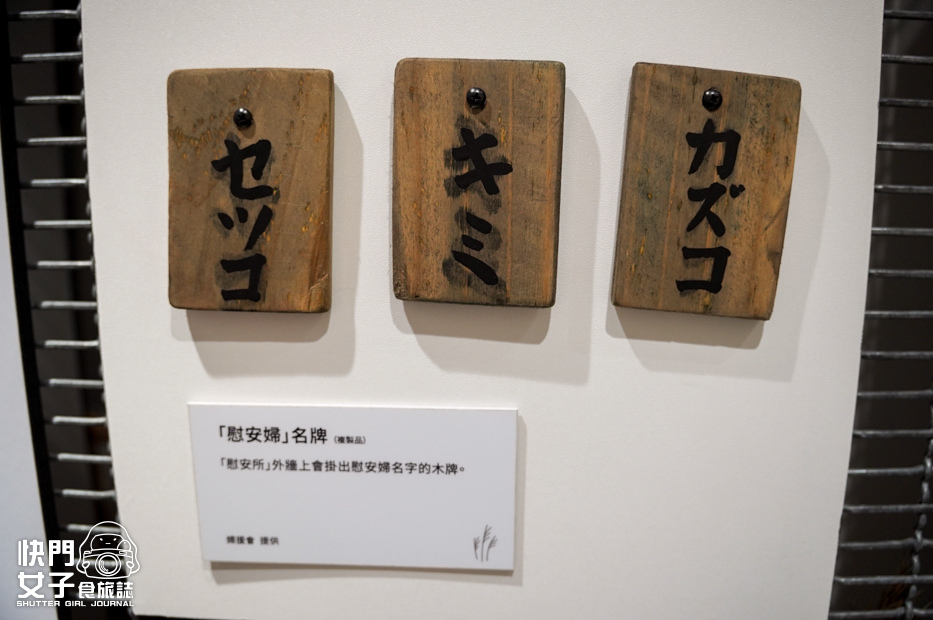 セツコ
キミ
カズコ
「慰安婦」名牌 (複製品)
「慰安所」外牆上會掛出慰安婦名字的木牌。
婦援會 提供
快門
女子食旅誌
SHUTTER GIRL JOURNAL